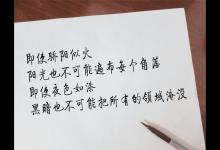 即使骄阳似火
阳光也不可能遍布每个角落
即使夜色如漆
黑暗也不可能把所有的领域淹没